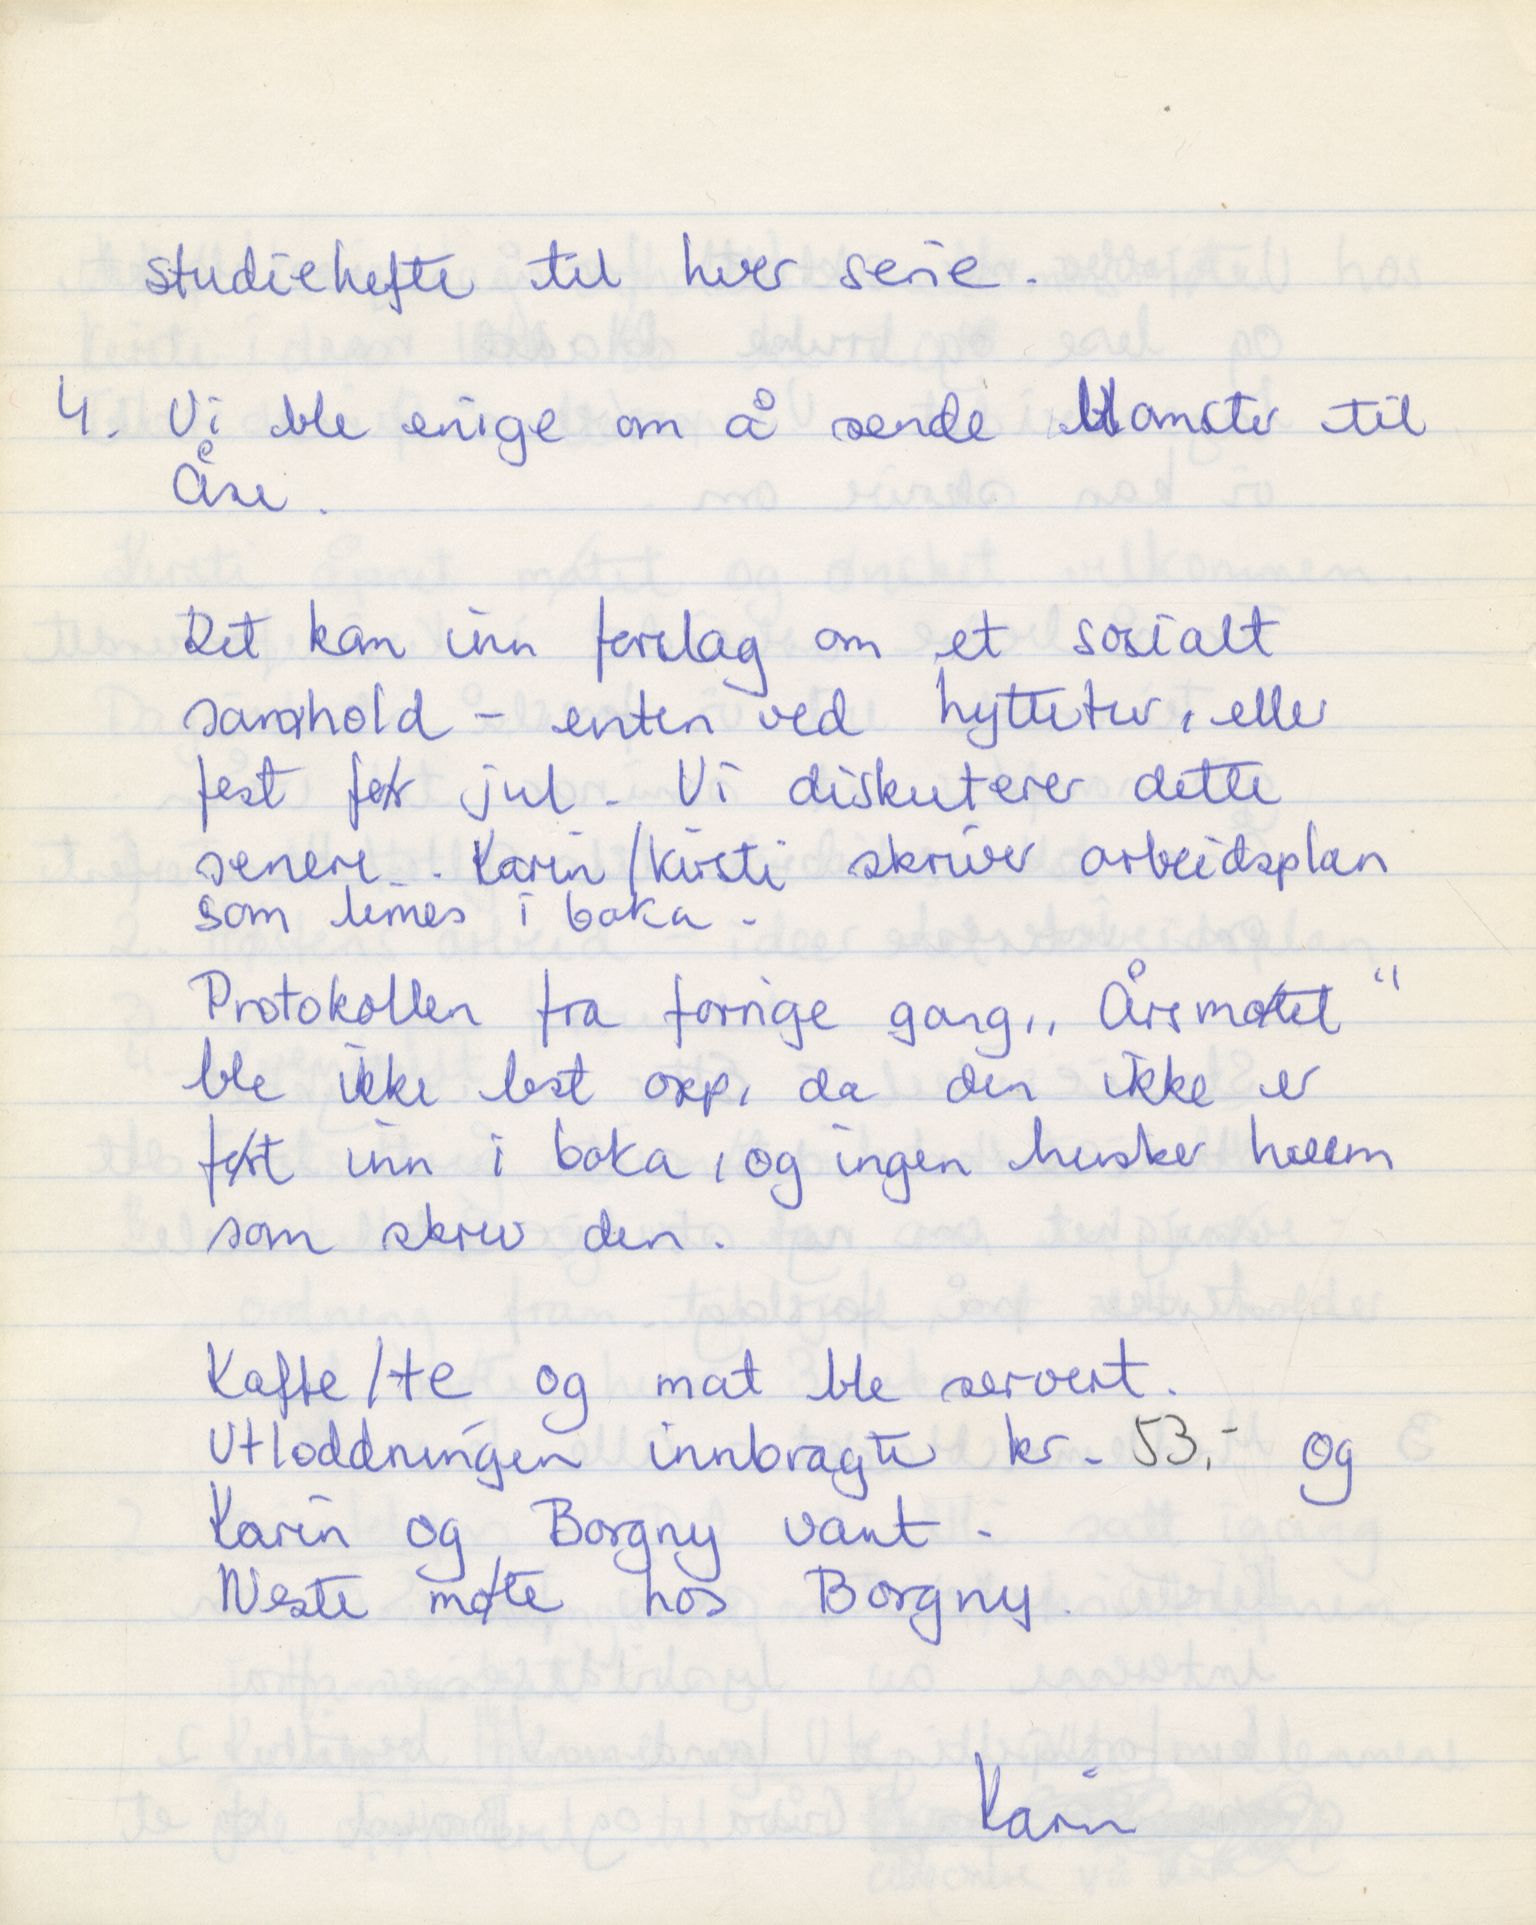 studiehefte til hver serie.
4. Vi ble enige om å sende blomster til
Åse.
Det kom inn forslag om et sosialt
samhold - enten ved hyttetur, eller
fest før jul. Vi diskuterer dette
senere. Karin/Kirsti skriver arbeidsplan
som limes i boka.
Protokollen fra forrige gang „Årsmøtet"
ble ikke lest opp, da den ikke er
ført inn i boka, og ingen husker hvem
som skrev den.
Kaffe/te og mat ble servert.
Utloddningen innbragte kr. 53,- og
Karin og Borgny vant.
Neste møte hos Borgny.
Karin